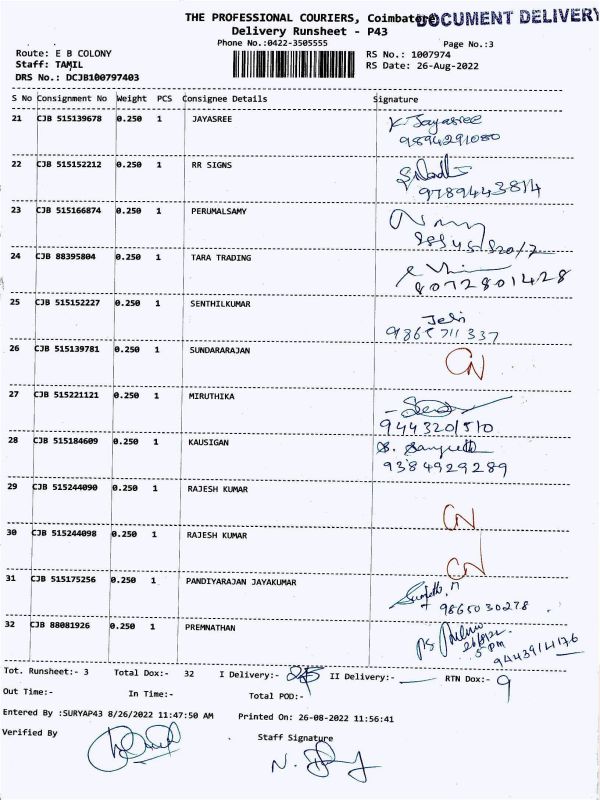 THE PROFESSIONAL COURIERS, Coimbatore
DOCUMENT DELIVERY
Delivery Runsheet - P43
Phone No.:0422-3505555
Page No.:3
Route: E B COLONY
RS No.: 1007974
Staff: TAMIL
RS Date: 26-Aug-2022
DRS No.: DCJB100797403
S No Consignment No Weight PCS Consignee Details Signature
21 CJB 515139678 0.250 1 JAYASREE K Jayasree
9894291080
22 CJB 515152212 0.250 1 RR SIGNS
9789443814
23 CJB 515166874 0.250 1 PERUMALSAMY
24 CJB 88395804 0.250 1 TARA TRADING
8072801428
25 CJB 515152227 0.250 1 SENTHILKUMAR
9865711337
26 CJB 515139781 0.250 1 SUNDARARAJAN CN
27 CJB 515221121 0.250 1 MIRUTHIKA
9443201510
28 CJB 515184609 0.250 1 KAUSIGAN
9384929289
29 CJB 515244090 0.250 1 RAJESH KUMAR CN
30 CJB 515244098 0.250 1 RAJESH KUMAR CN
31 CJB 515175256 0.250 1 PANDIYARAJAN JAYAKUMAR
9865030278
32 CJB 88081926 0.250 1 PREMNATHAN
5 pm
9443914176
Tot. Runsheet:- 3 Total Dox:- 32 I Delivery:- II Delivery:- RTN Dox:- 9
Out Time:- In Time:- Total POD:-
Entered By :SURYAP43 8/26/2022 11:47:50 AM Printed On: 26-08-2022 11:56:41
Verified By
Staff Signature